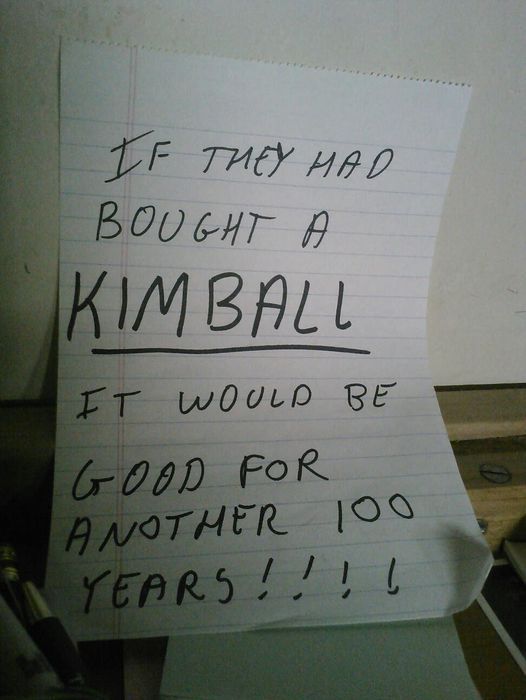 IF THEY HAD
BOUGHT A
KIMBALL
IT WOULD BE
GOOD FOR
ANOTHER 100
YEARS!!!!